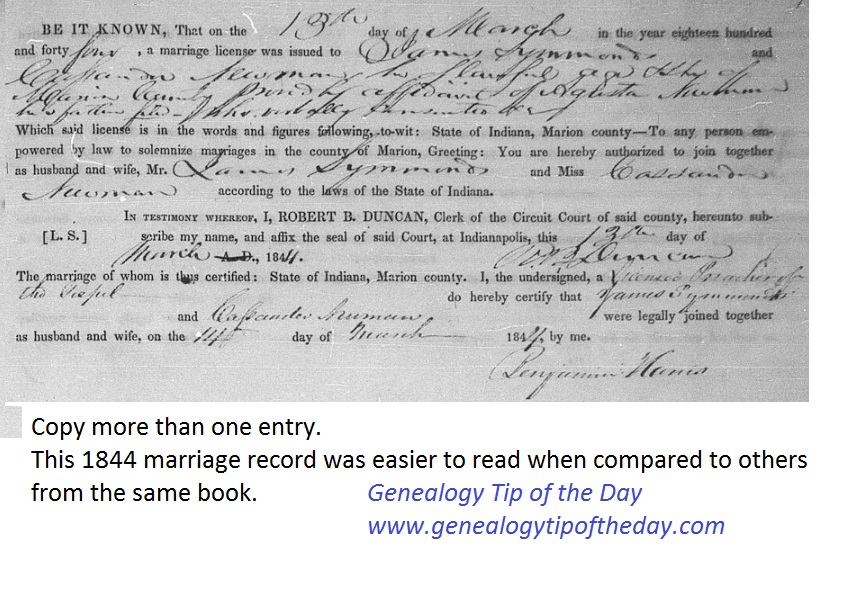 BE IT KNOWN, That on the 13th day of March in the year eighteen hundred
and forty four, a marriage license was issued to James Symmonds and
Cassander Newman she of lawful age
Marion County Proved by affidavit of Newman
her father
Which said license is in the words and figures following, to-wit: State of Indiana, Marion county—To any person em-
powered by law to solemnize marriages in the county of Marion, Greeting: You are hereby authorized to join together
as husband and wife, Mr. James Symmonds and Miss Cassander
Newman according to the laws of the State of Indiana.
IN TESTIMONY WHEREOF, I, ROBERT B. DUNCAN, Clerk of the Circuit Court of said county, hereunto sub-
[L. S.] scribe my name, and affix the seal of said Court, at Indianapolis, this 13th day of
March A. D., 1844. R. B. Duncan
The marriage of whom is thus certified: State of Indiana, Marion county. I, the undersigned, a Licensed Preacher of
the Gospel do hereby certify that James Symmonds
and Cassander Newman were legally joined together
as husband and wife, on the 14th day of March 1844, by me.
Benjamin Harris
Copy more than one entry.
This 1844 marriage record was easier to read when compared to others
from the same book. Genealogy Tip of the Day
www.genealogytipoftheday.com